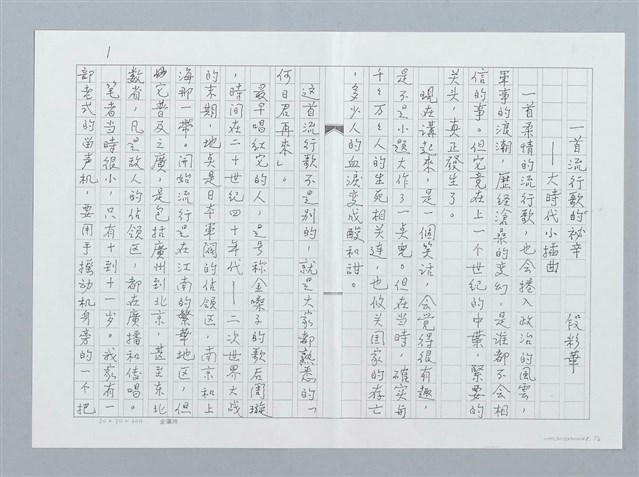 一首流行歌的秘辛
——大時代小插曲
段彩華
一首柔情的流行歌，也会捲入政治的風雲，
軍事的浪潮，歷經滄桑的变幻，是誰都不会相
信的事。但它竟在上一个世纪的中葉，緊要的
关头，真正發生了。
現在講起來，是一個笑话，会觉得很有趣，
是不是小题大作了一桌兒。但在当時，確实与
千千万万人的生死相关連，也攸关国家的存亡
，多少人的血淚变成酸和甜。
这首流行歌不是别的，就是大家都熟悉的「
何日君再來」。
最早唱红它的人，是号称金嗓子的歌后周璇
，時间在二十世纪四十年代——二次世界大战
的末期，地点是日本軍阀的佔領区，南京和上
海那一帶。開始流行是在江南的繁華地区，但
它普及之廣，是包括廣州到北京，甚至东北
数省，凡是敌人的佔領区，都在廣播和传唱。
笔者当時很小，只有十到十一岁。我家有一
部老式的留声机，要用手摇动机身旁的一个把
1
20×20=400
金蓮牌